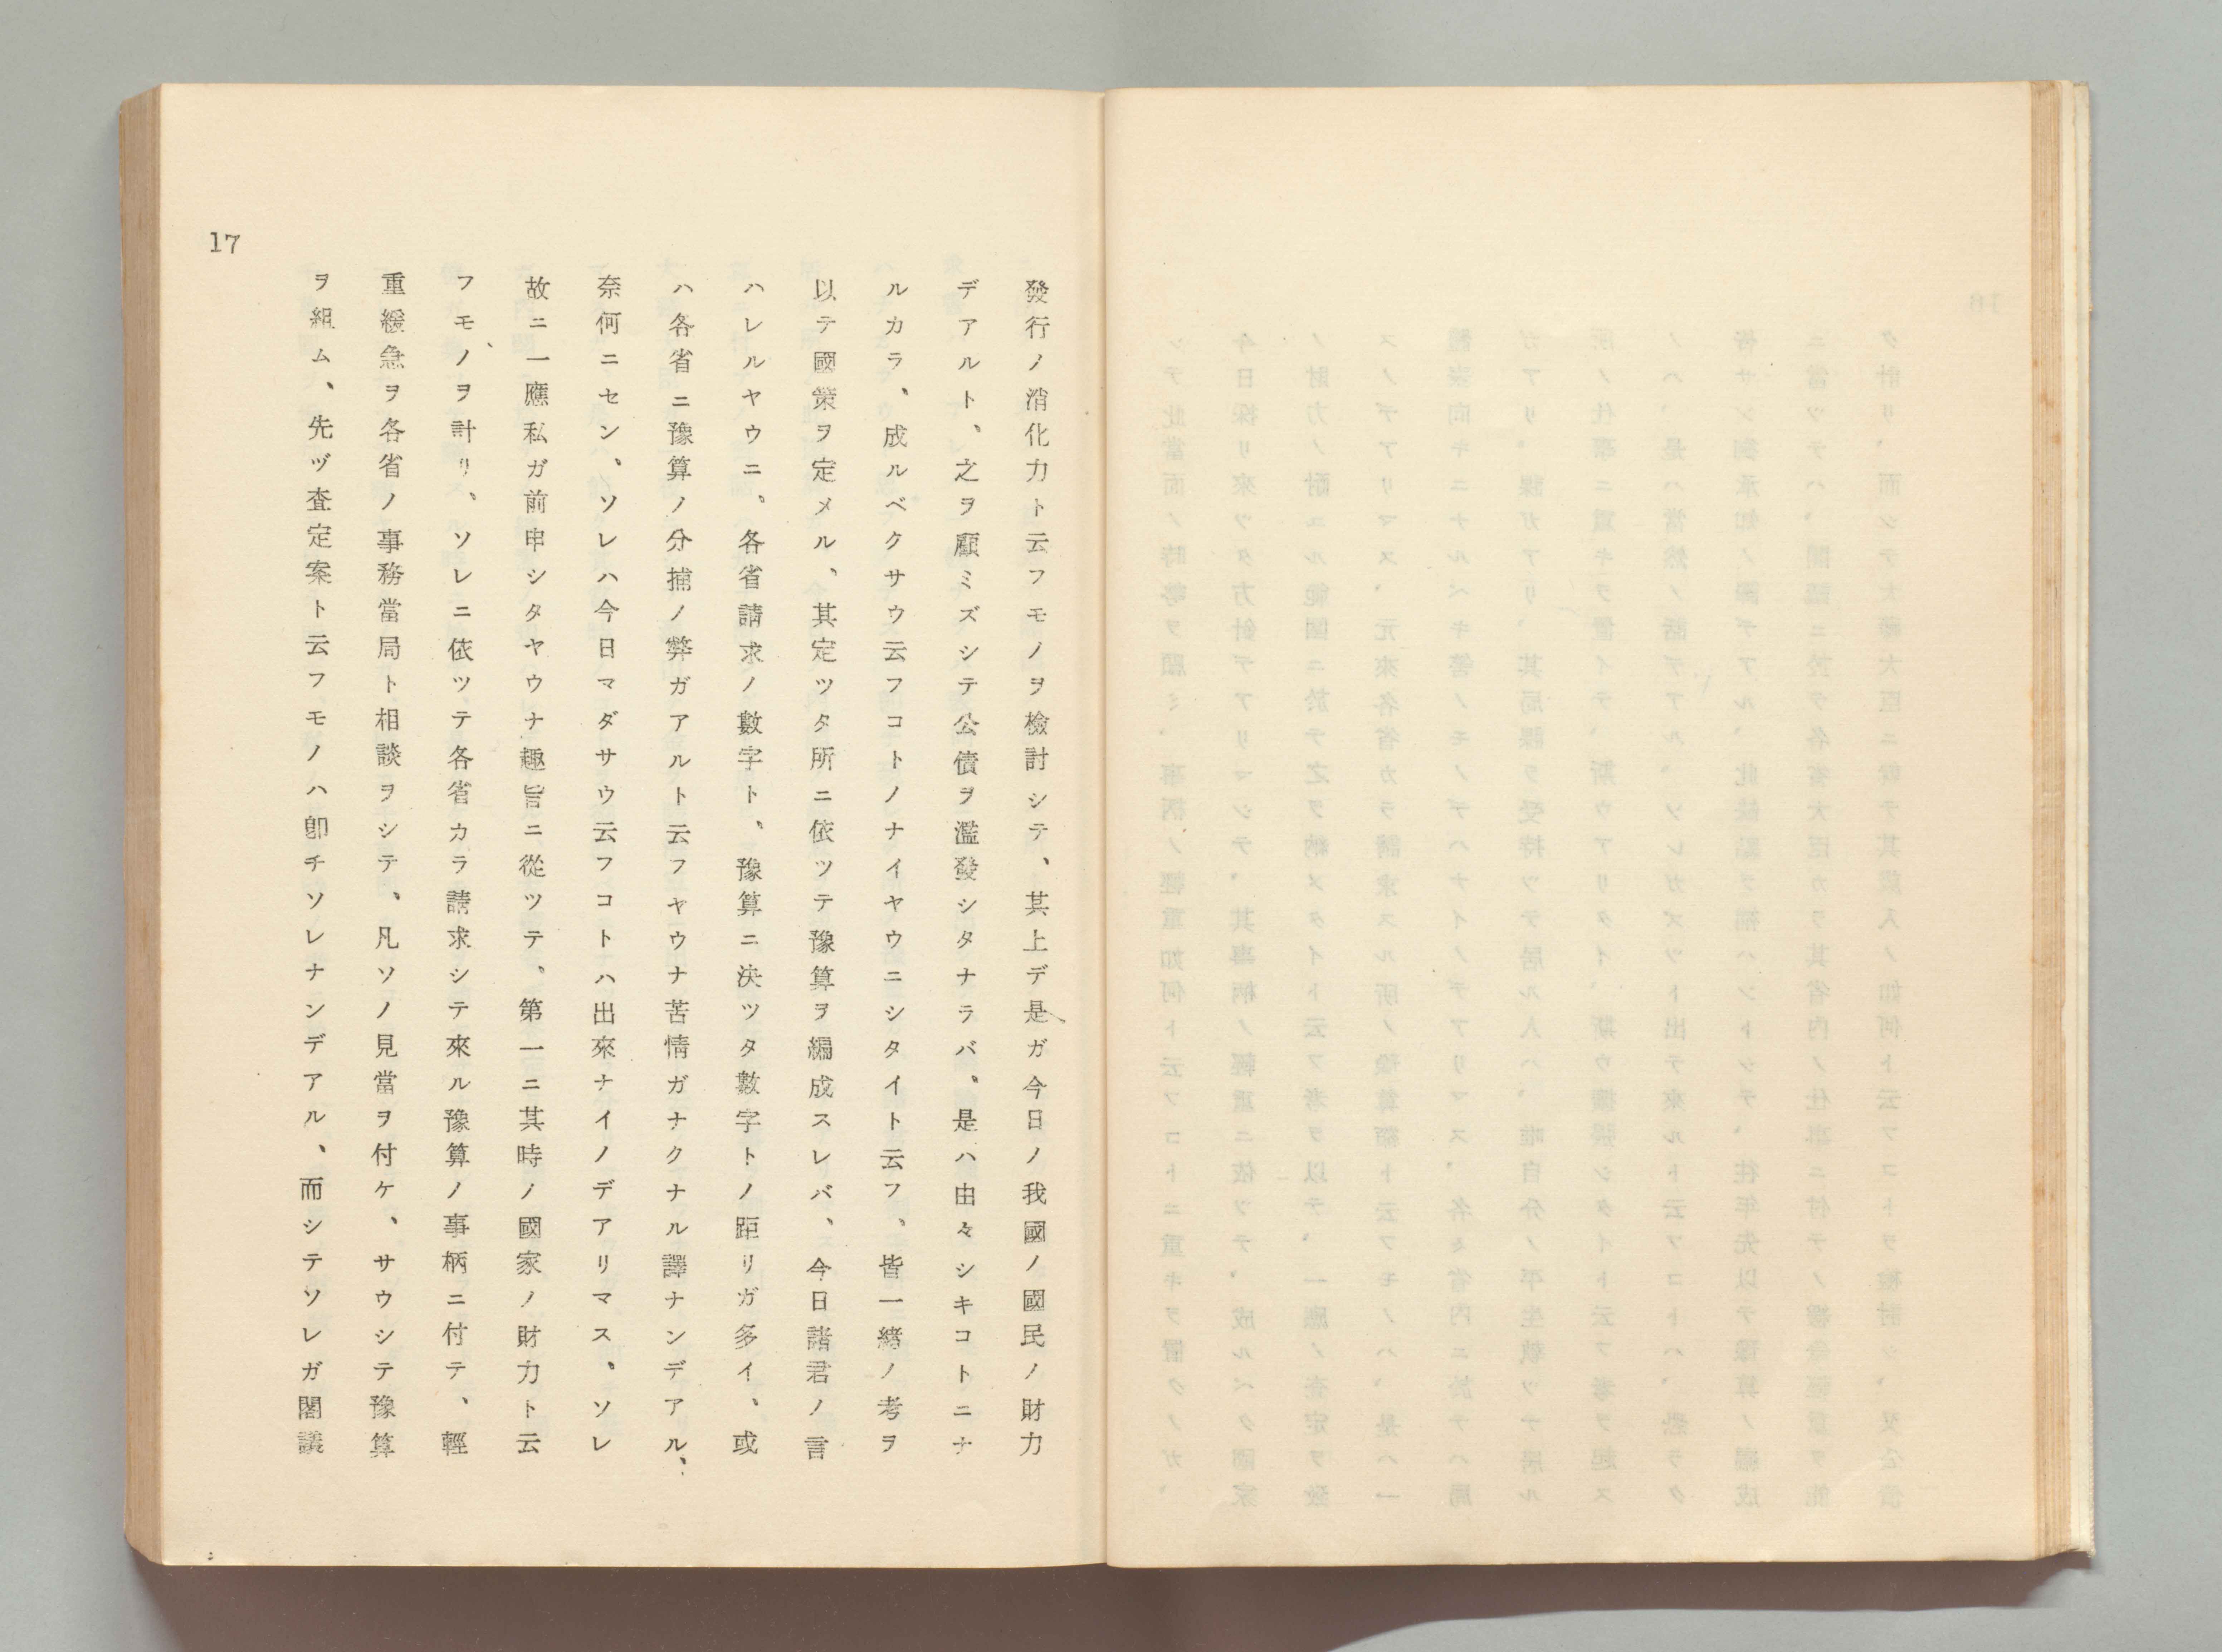 發行ノ消化力ト云フモノヲ檢討シテ、其上デ是ガ今日ノ我國ノ國民ノ財力
デアルト、之ヲ顧ミズシテ公債ヲ濫發シタナラバ、是ハ由々シキコトニナ
ルカラ、成ルベクサウ云フコトノナイヤウニシタイト云フ、皆一緒ノ考ヲ
以テ國策ヲ定メル、其定ツタ所ニ依ツテ豫算ヲ編成スレバ、今日諸君ノ言
ハレルヤウニ、各省請求ノ數字ト、豫算ニ決ツタ數字トノ距リガ多イ、或
ハ各省ニ豫算ノ分捕ノ弊ガアルト云フヤウナ苦情ガナクナル譯ナンデアル、
奈何ニセン、ソレハ今日マダサウ云フコトハ出來ナイノデアリマス、ソレ
故ニ一應私ガ前申シタヤウナ趣旨ニ從ツテ、第一ニ其時ノ國家ノ財力ト云
フモノヲ計リ、ソレニ依ツテ各省カラ請求シテ來ル豫算ノ事柄ニ付テ、輕
重緩急ヲ各省ノ事務當局ト相談ヲシテ、凡ソノ見當ヲ付ケ、サウシテ豫算
ヲ組ム、先ヅ査定案ト云フモノハ卽チソレナンデアル、而シテソレガ閣議
17